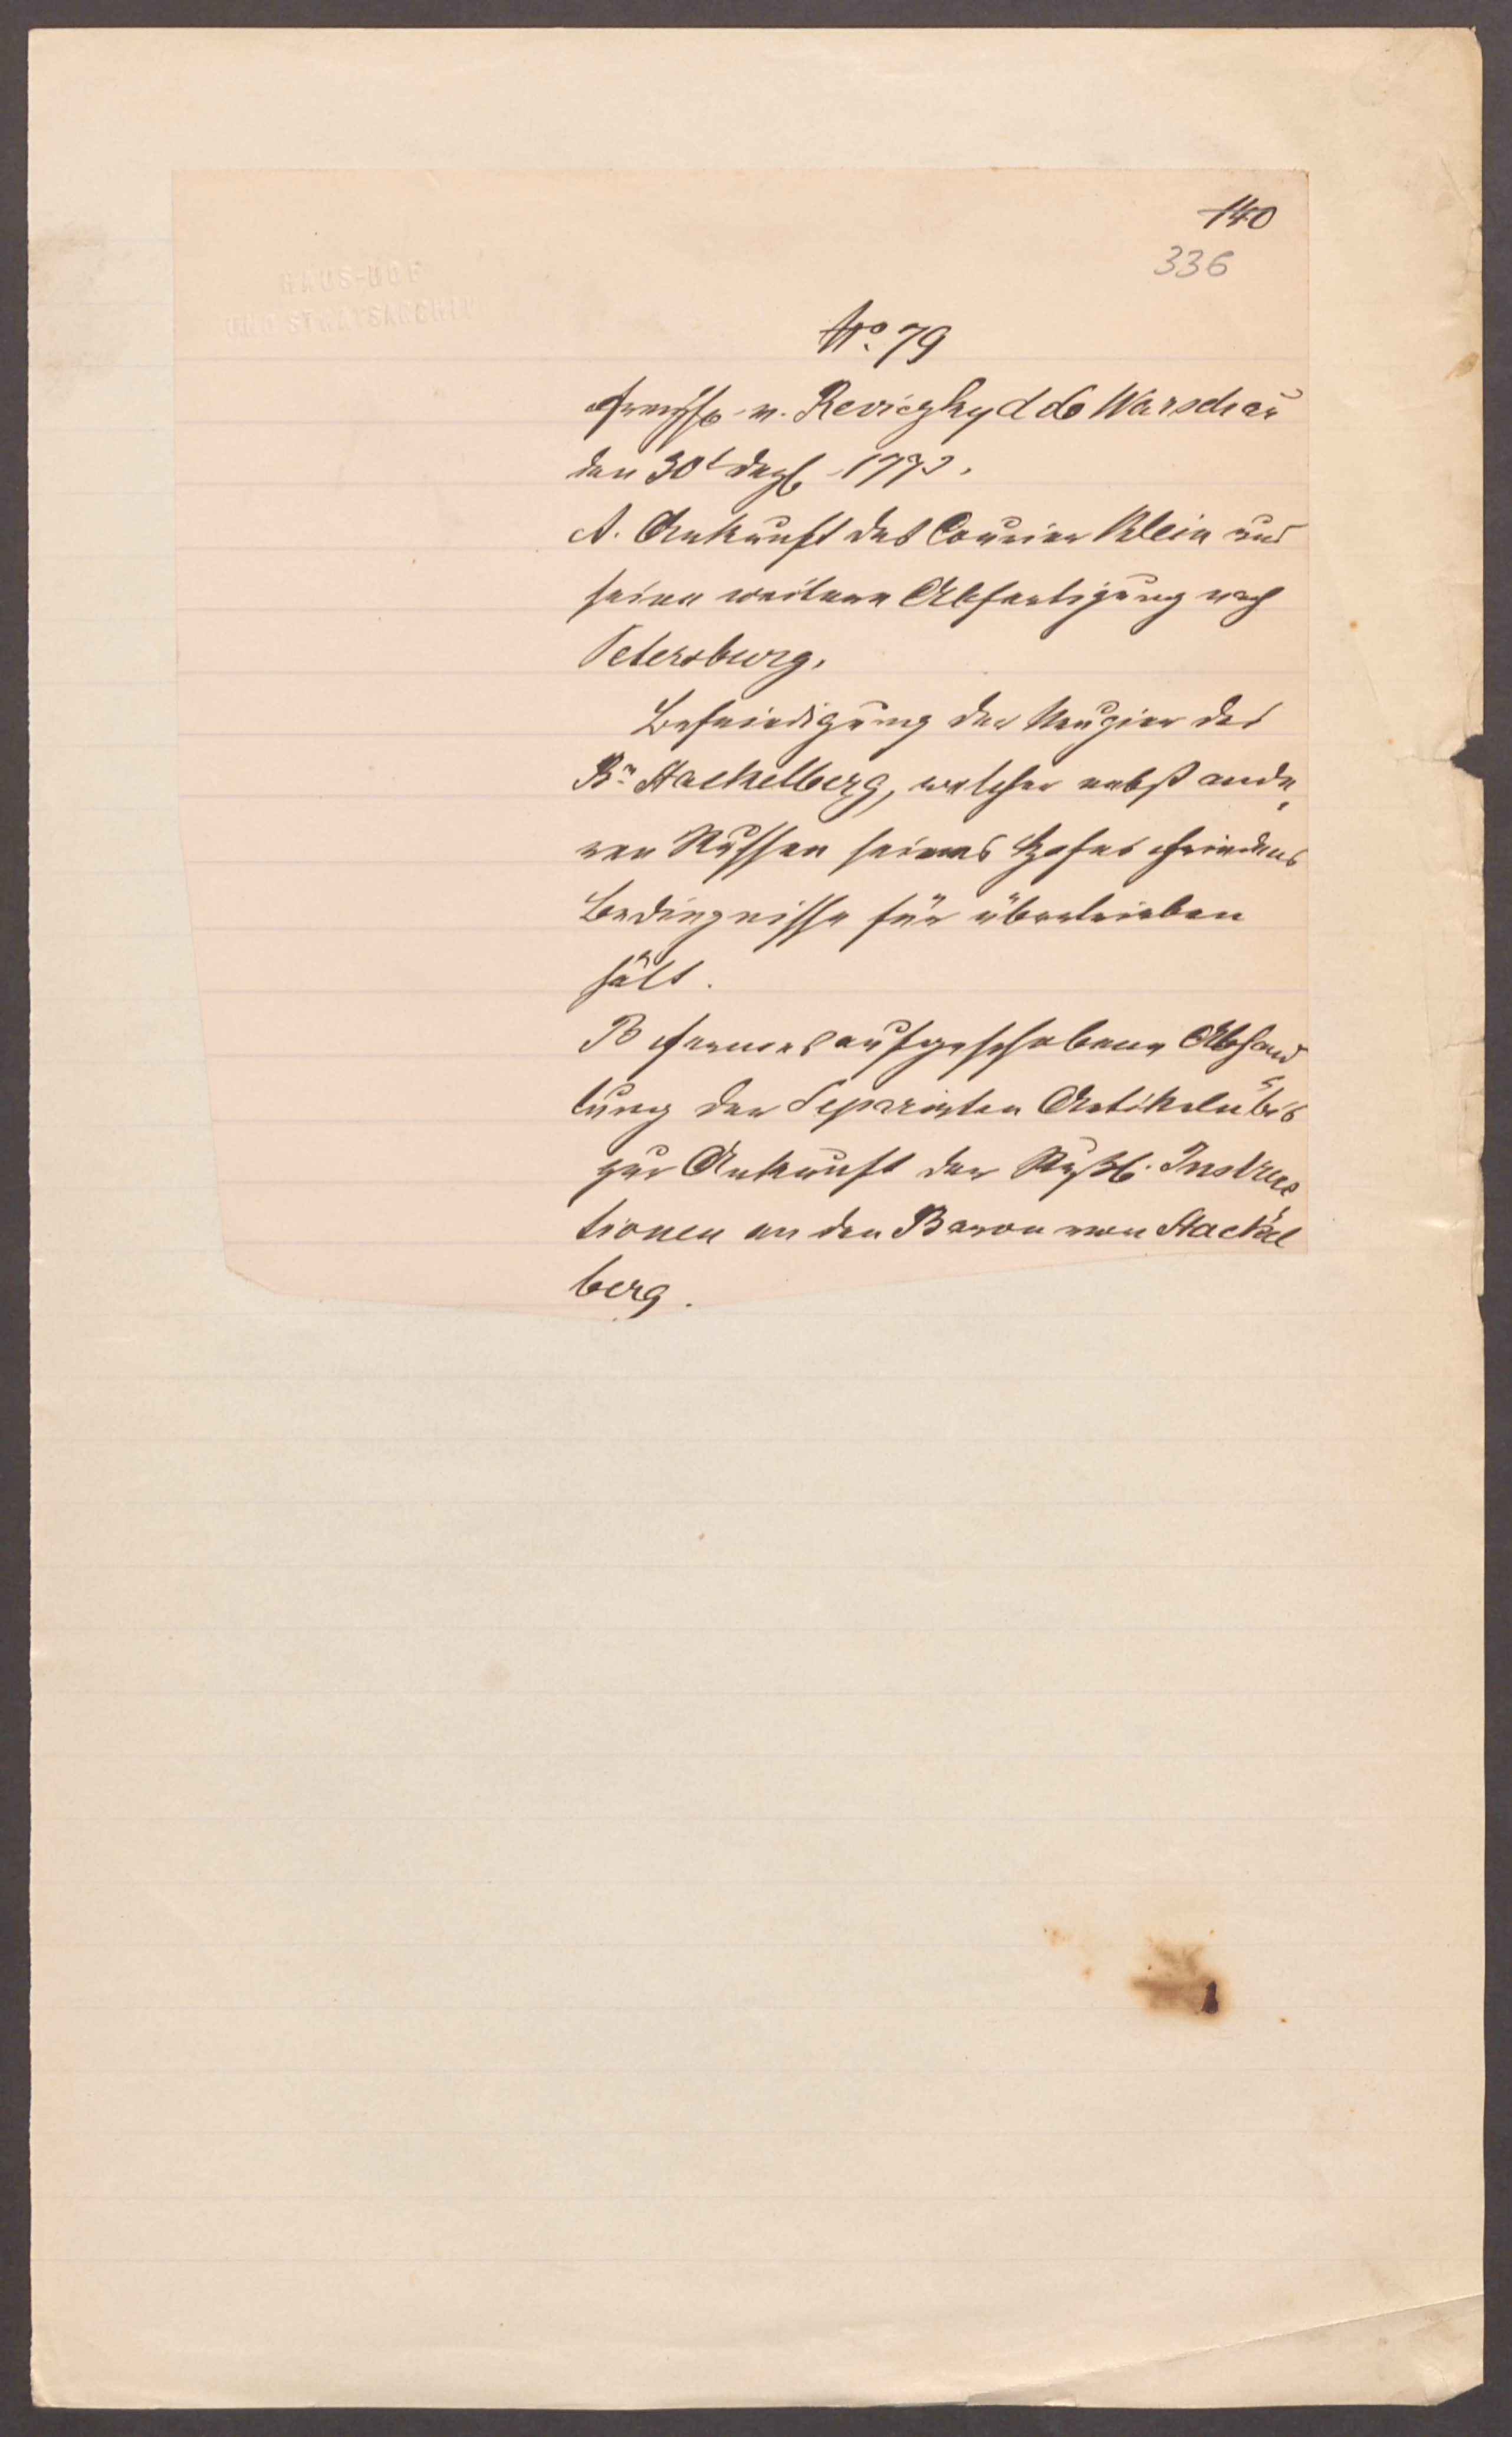 140
336
HAUS-HOF
UND STAATSARCHIV
No. 79
Freyh. v. Reviczky d do Warschau
den 30t Dezb 1772.
A. Ankunft des Courier Klein und
seine weitere Abfertigung nach
Petersburg.
Befriedigung der Neugier des
Bn Stackelberg, welcher nebst ande
ren Russen seines Hofes Friedens
Bedingnisse für übertrieben
hält.
B Ferners aufgeschobene Abhand
lung der Separirten Artikeln bis
zur Ankunft der Rußl. Instruc
tionen an den Baron von Stackel
berg.